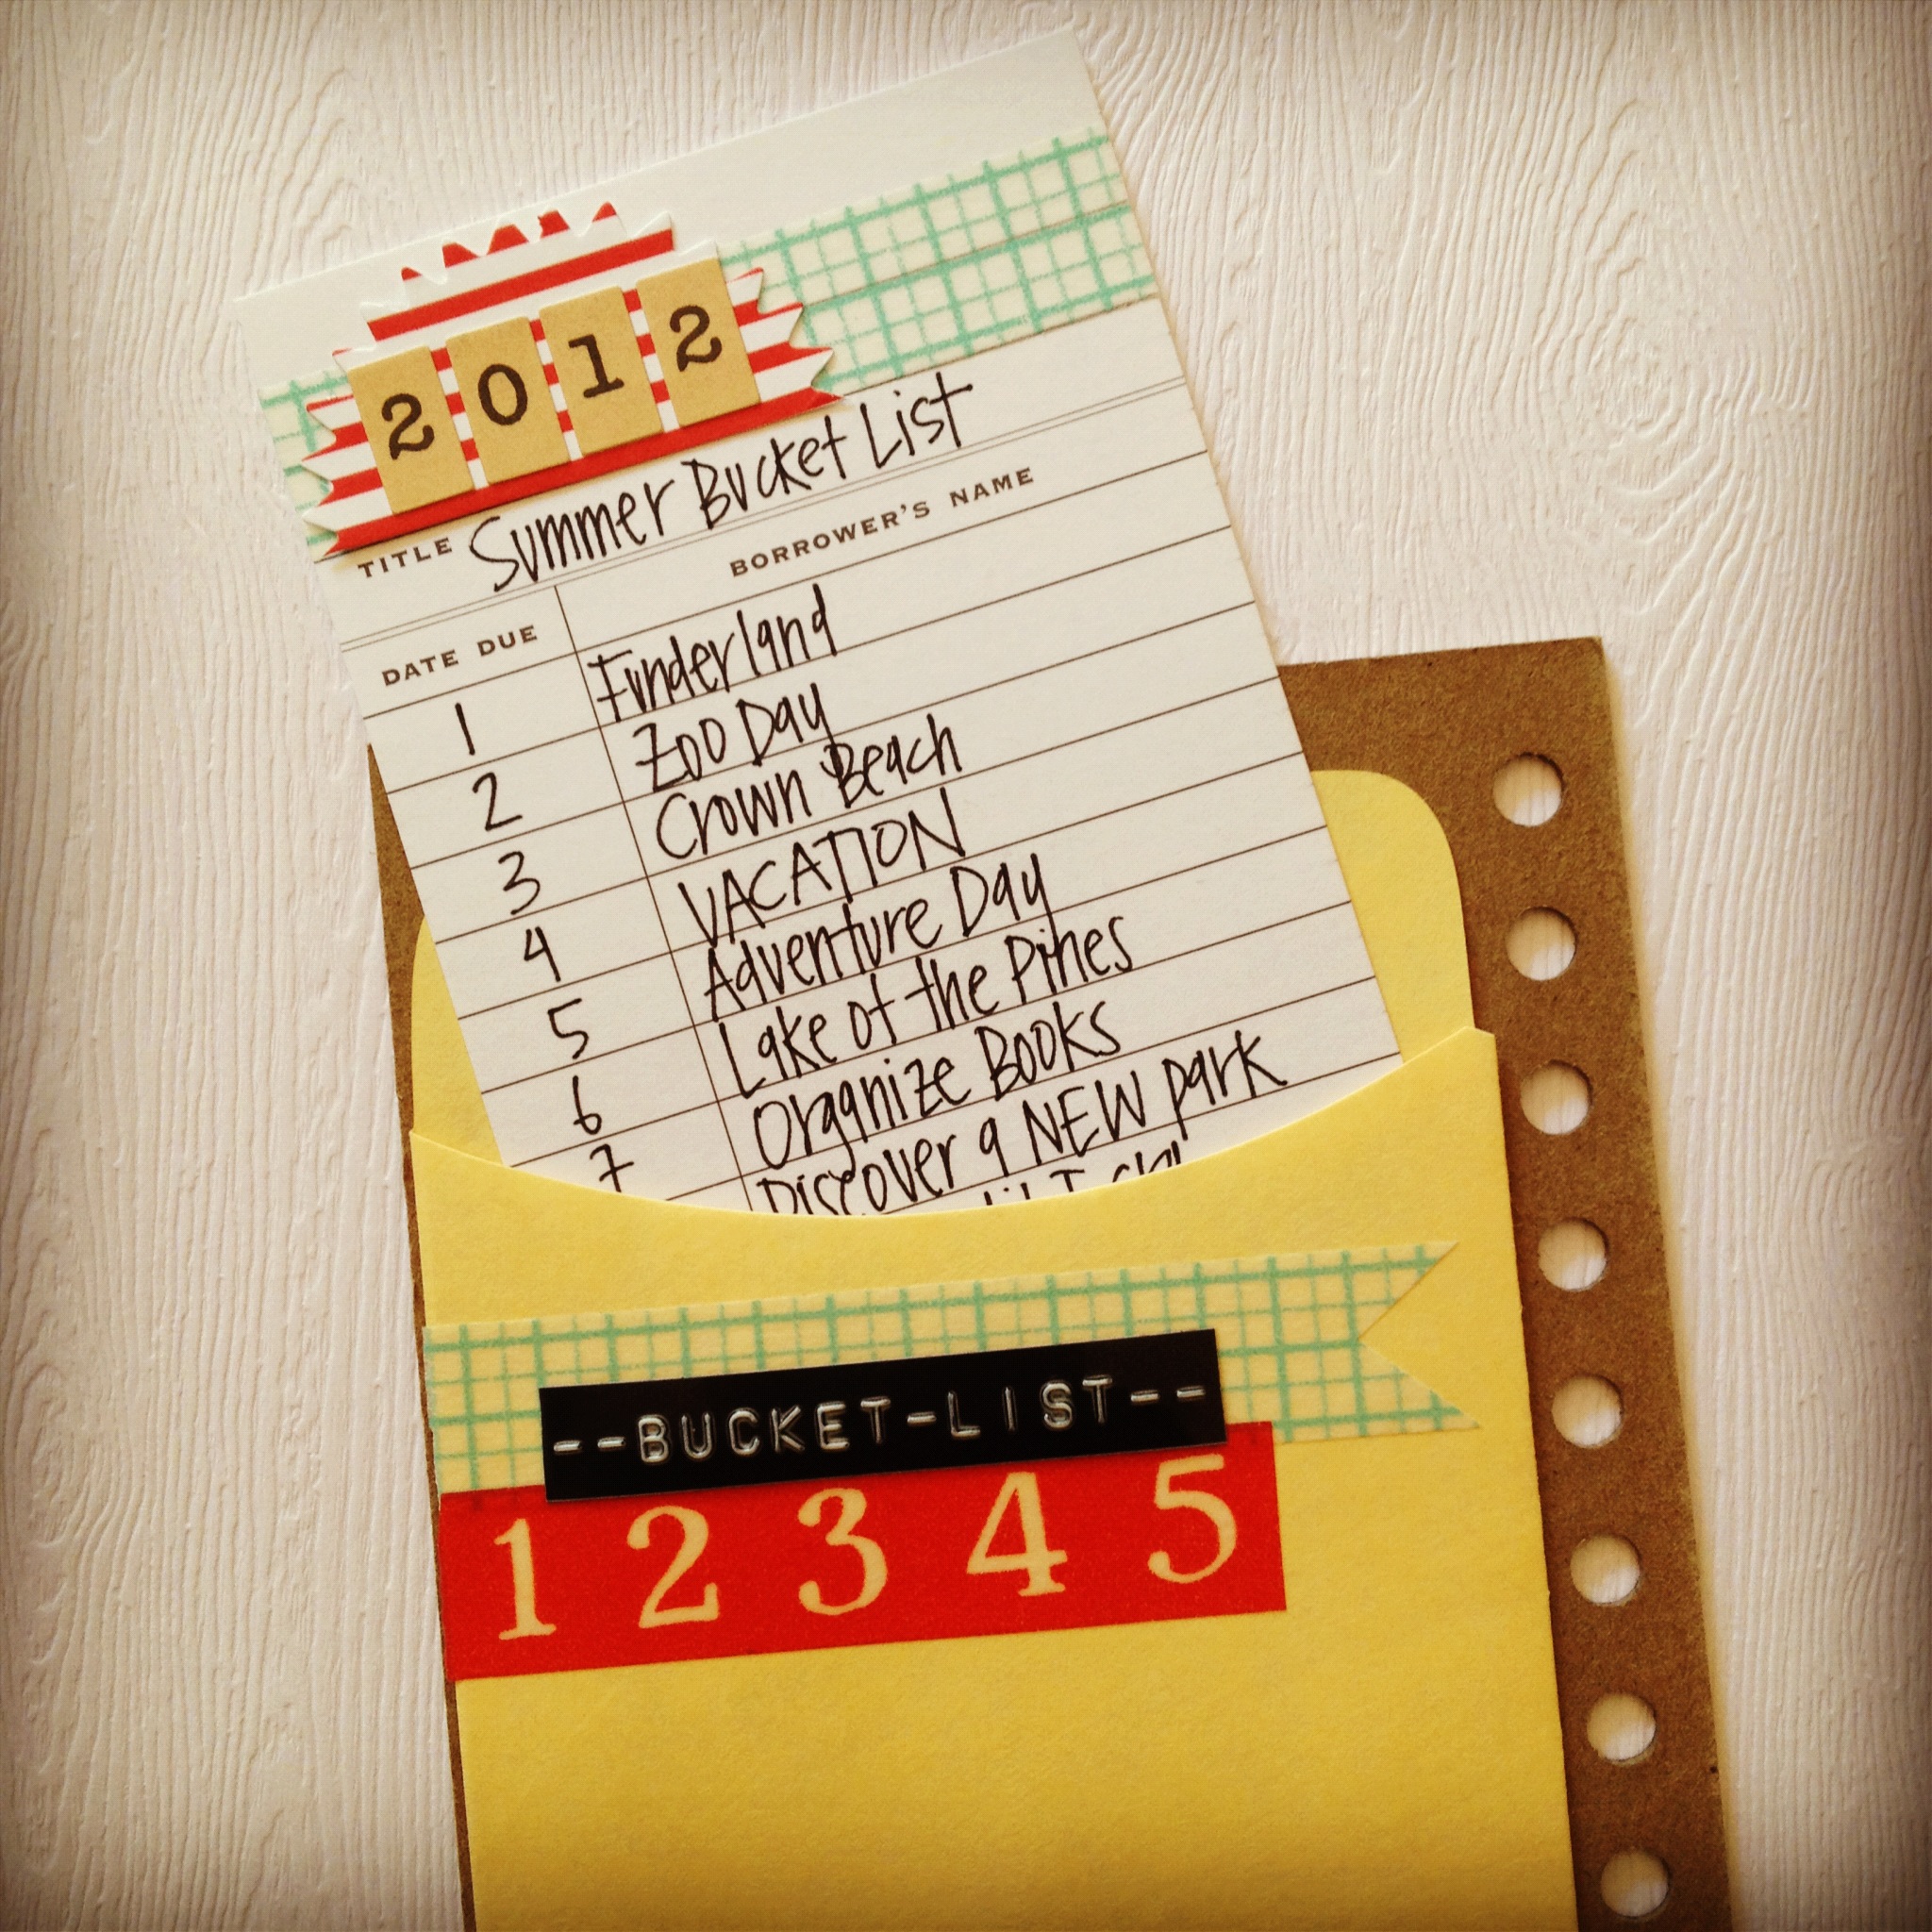 2012
TITLE Summer Bucket List
DATE DUE BORROWER'S NAME
1 Funderland
2 Zoo Day
3 Crown Beach
4 VACATION
5 Adventure Day
6 Lake of the Pines
7 Organize Books
Discover a NEW park
--BUCKET-LIST--
1 2 3 4 5